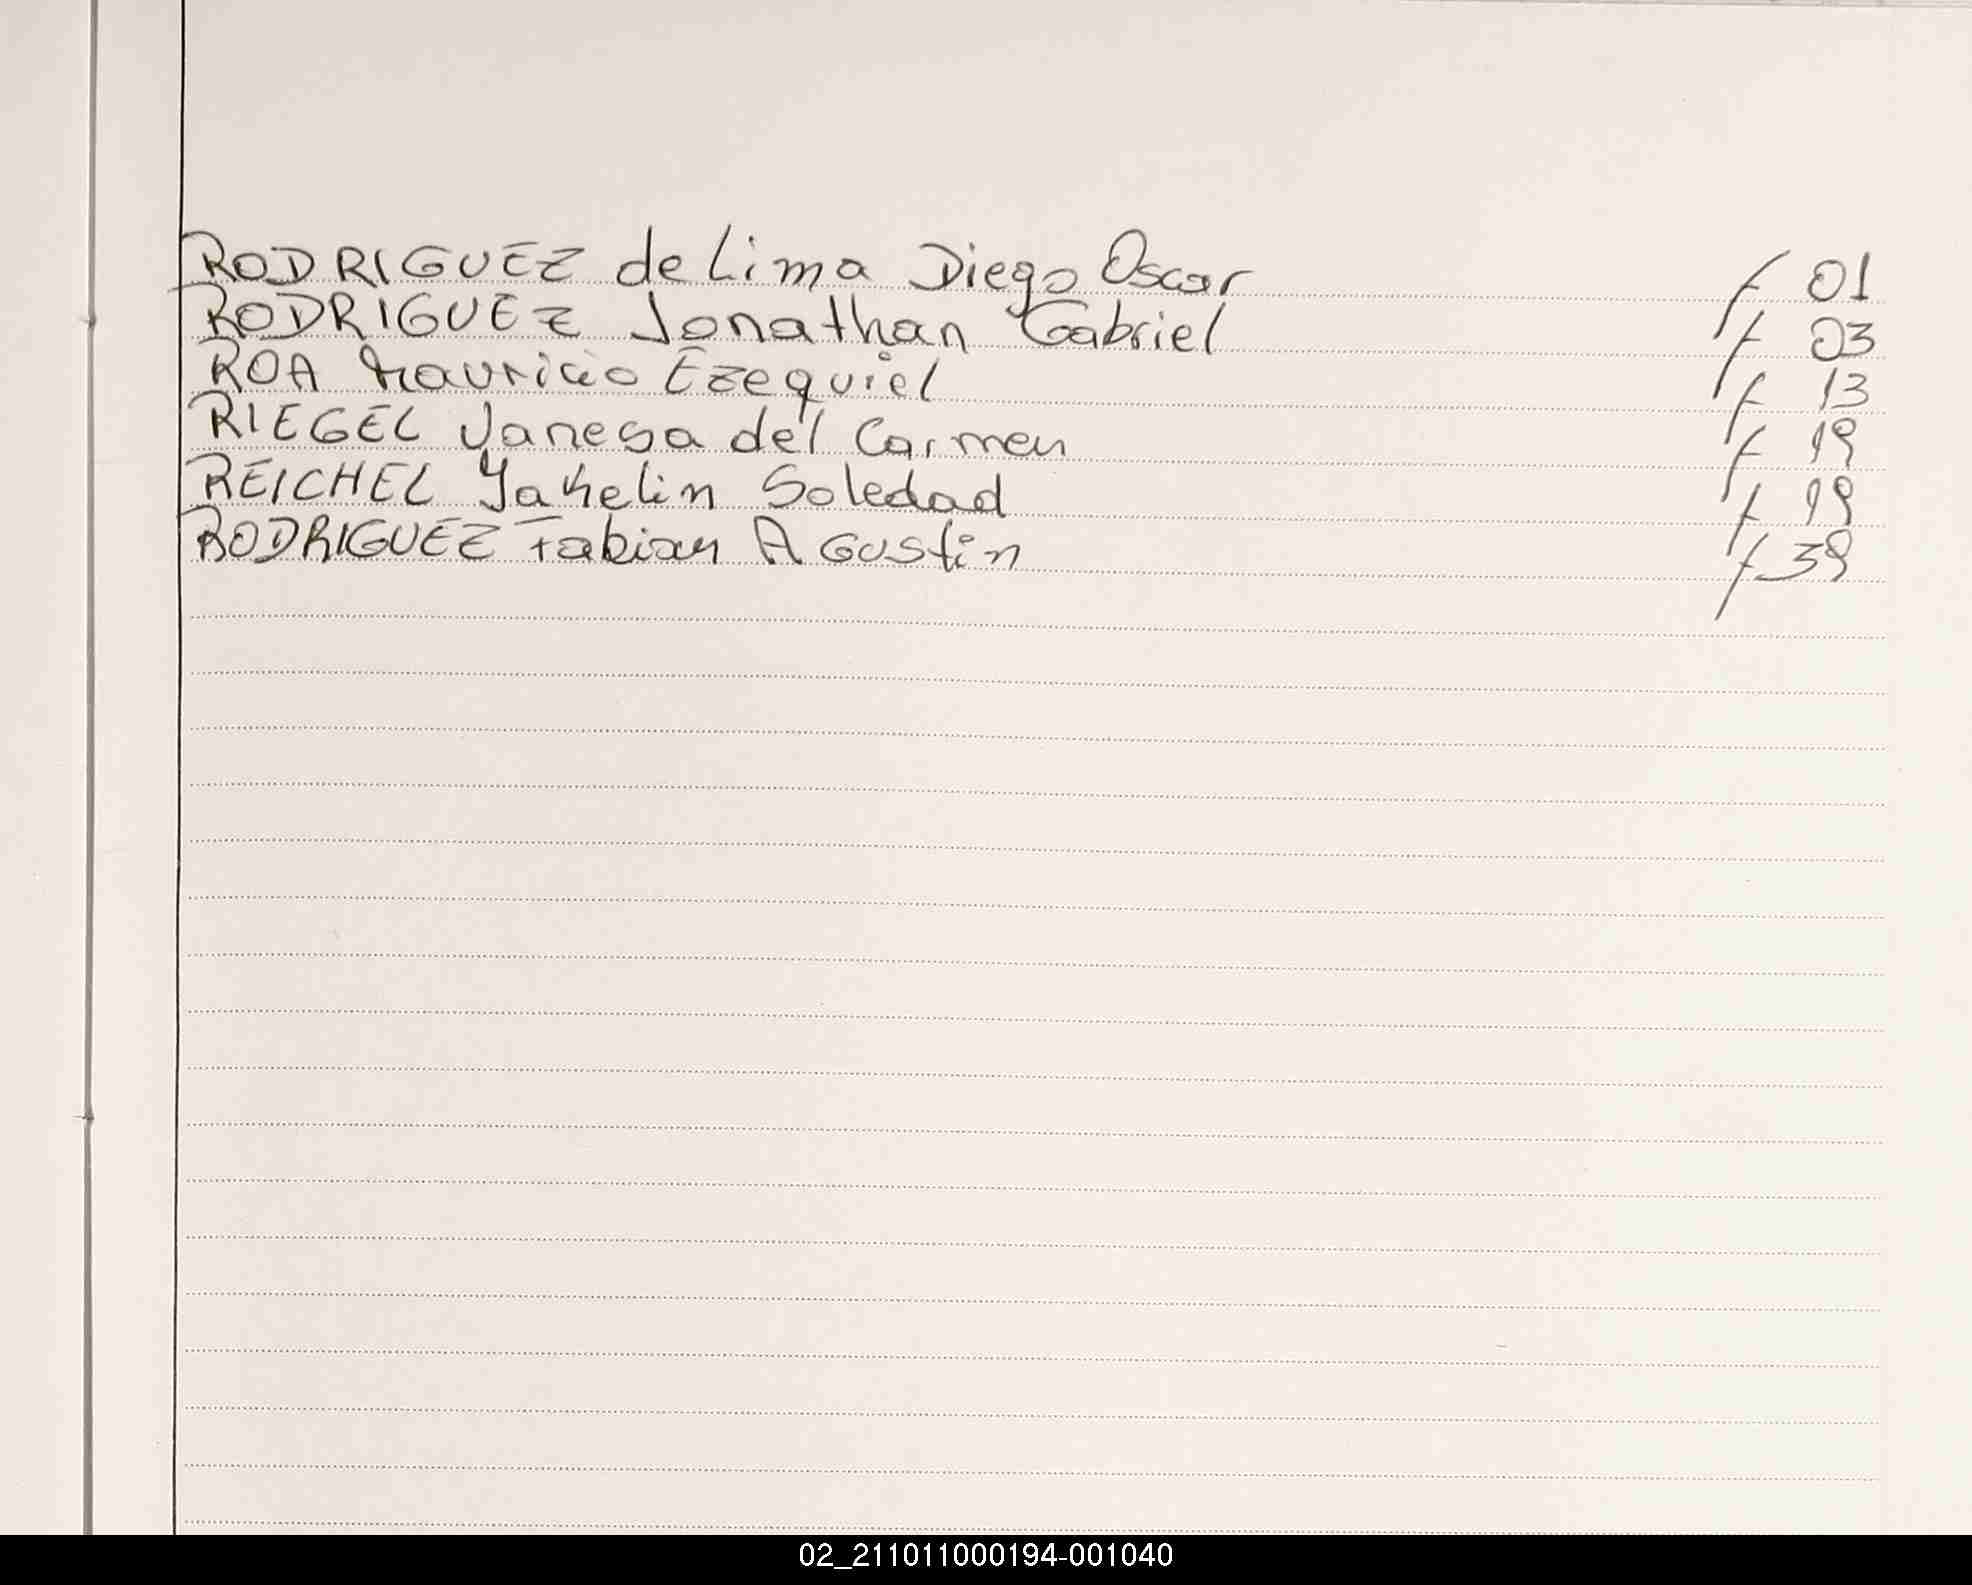 RODRIGUEZ de Lima Diego Oscar f 01
RODRIGUEZ Jonathan Gabriel f 03
ROA Mauricio Ezequiel f 13
RIEGEL Vanesa del Carmen f 19
REICHEL Yakelin Soledad f 19
RODRIGUEZ Fabian Agustin f 39
02_211011000194-001040